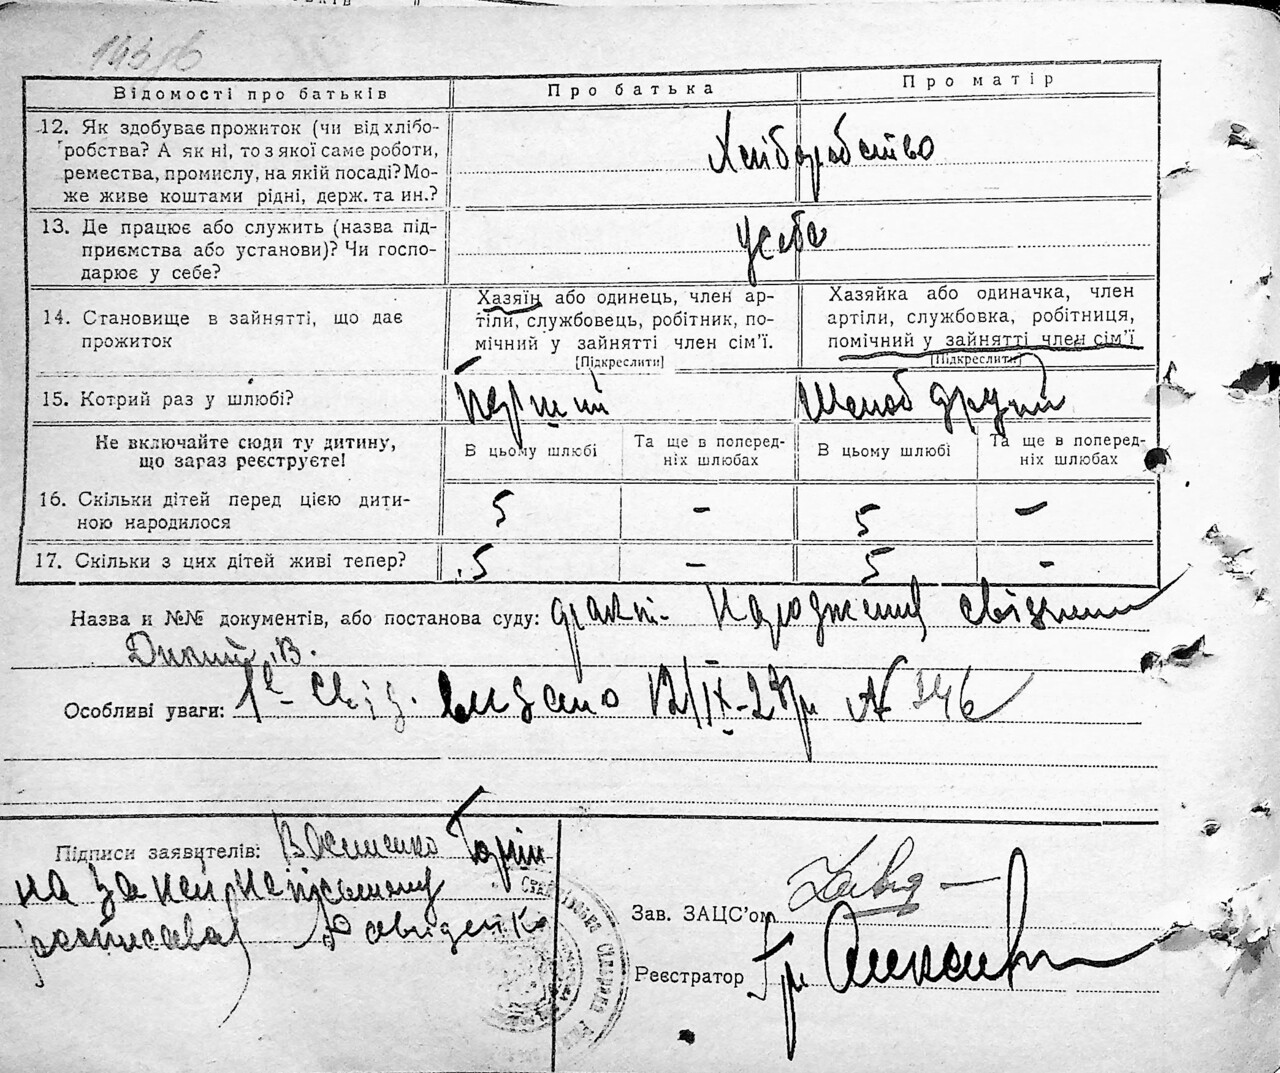 143зв
Відомості про батьків
Про батька
Про матір
12. Як здобуває прожиток (чи від хлібо-
робства? А як ні, то з якої саме роботи,
ремества, промислу, на якій посаді? Мо-
же живе коштами рідні, держ. та ин.?
Хліборобство
13. Де працює або служить (назва під-
приємства або установи)? Чи госпо-
дарює у себе?
у себе
14. Становище в зайнятті, що дає
прожиток
Хазяїн або одинець, член ар-
тіли, службовець, робітник, по-
мічний у зайнятті член сім'ї.
[Підкреслити]
Хазяйка або одиначка, член
артіли, службовка, робітниця,
помічний у зайнятті член сім'ї
[Підкреслити]
15. Котрий раз у шлюбі?
Перший
Шлюб другий
Не включайте сюди ту дитину,
що зараз реєструєте!
В цьому шлюбі
Та ще в поперед-
ніх шлюбах
В цьому шлюбі
Та ще в поперед-
ніх шлюбах
16. Скільки дітей перед цією дити-
ною народилося
5 - 5 -
17. Скільки з цих дітей живі тепер?
5 - 5 -
Назва и №№ документів, або постанова суду:
Особливі уваги: видано 12/IX-27р № 546
Підписи заявителів: Василенко
на за неї неписьменну
росписавсь
Зав. ЗАЦС'ом
Реєстратор